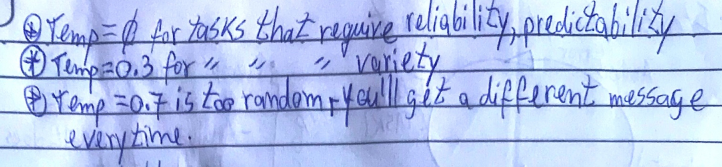 ⊛ Temp=0 for tasks that require reliability, predictability
⊛ Temp=0.3 for " " " variety
⊛ Temp=0.7 is too random, you'll get a different message
everytime.